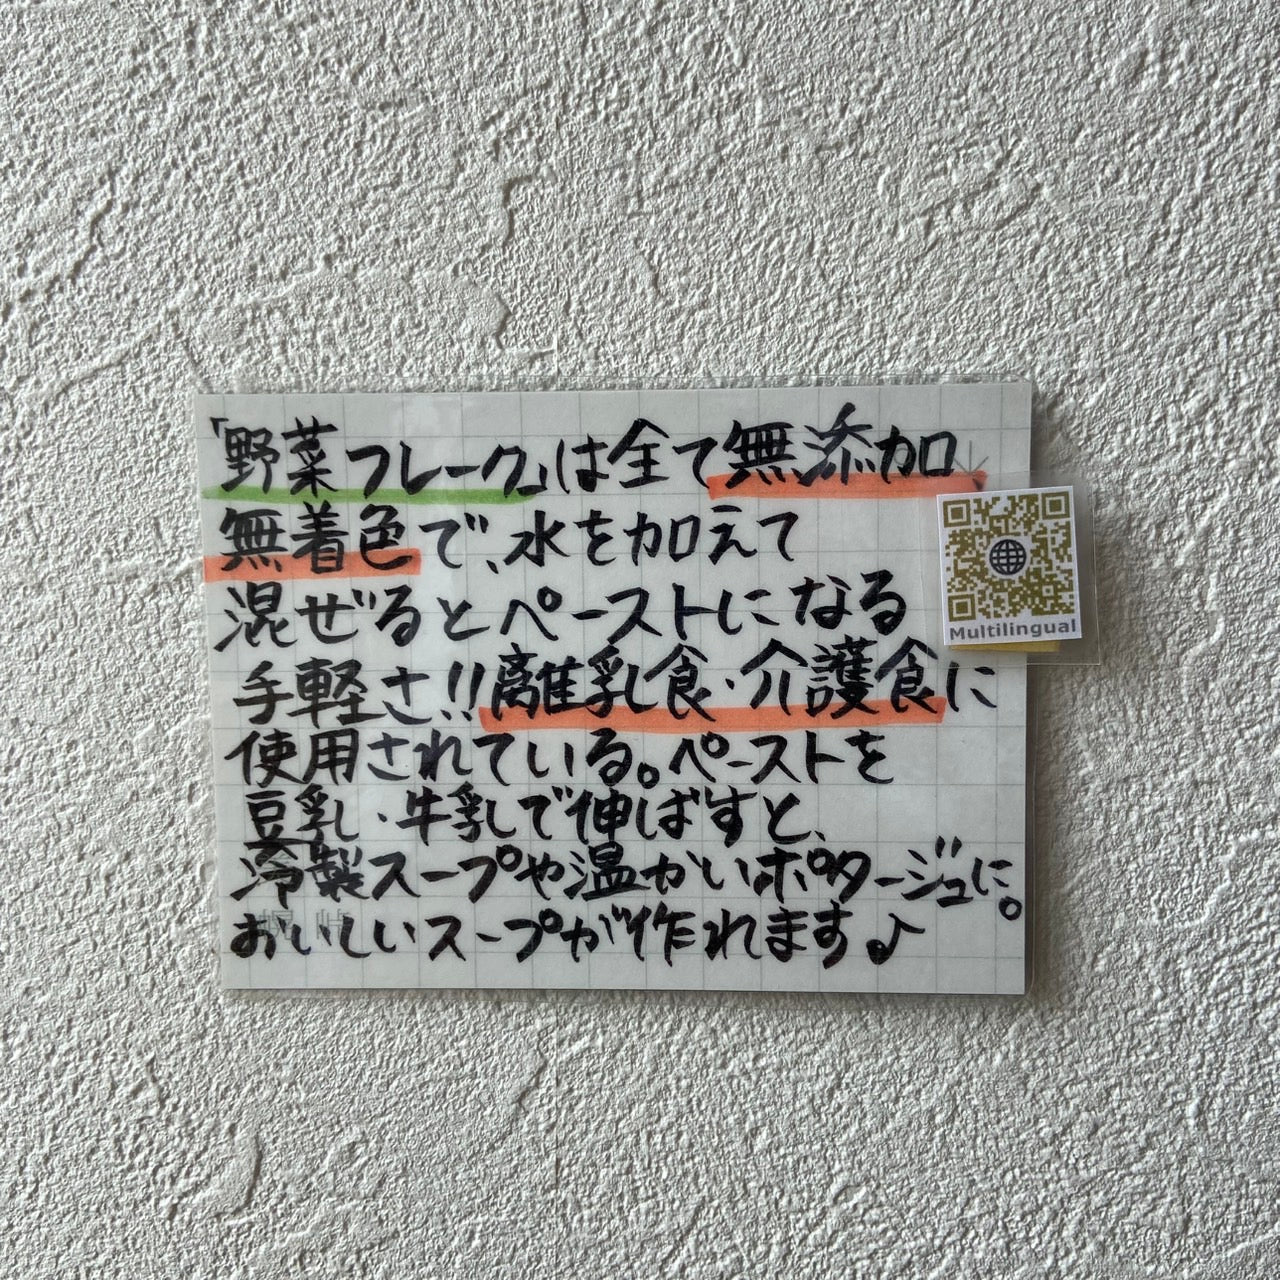 「野菜フレーク」は全て無添加
無着色で、水を加えて
混ぜるとペーストになる
手軽さ!!離乳食・介護食に
使用されている。ペーストを
豆乳・牛乳で伸ばすと、
冷製スープや温かいポタージュに。
おいしいスープが作れます♪
Multilingual